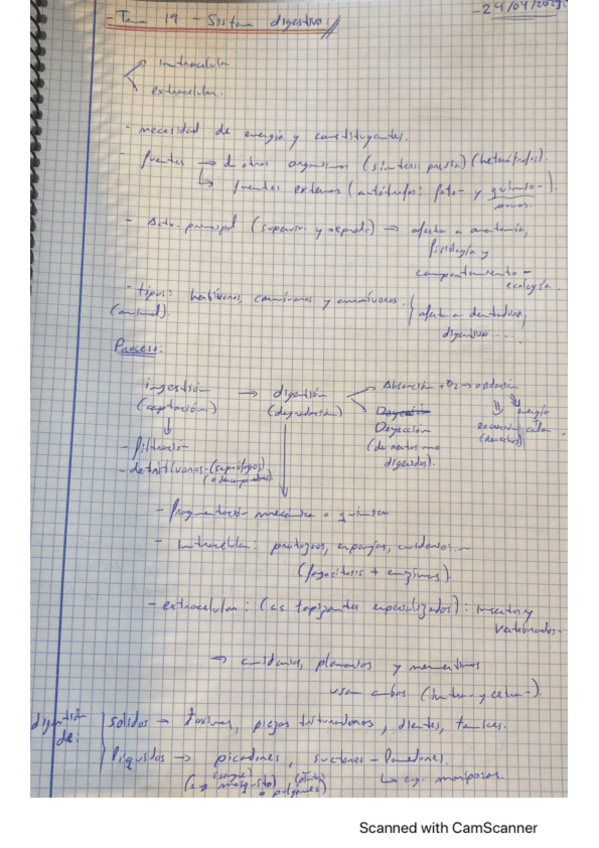 - Tema 19 - Sistema digestivo
- 24/04/202
intracelular
extracelular.
- necesidad de energía y constituyentes.
- fuentes → de otros organismos (síntesis previa) (heterótrofos).
↳ fuentes externas (autótrofos: foto- y químio-).
- Acto. principal (superviv. y reprod.) → afecta a anatomía,
fisiología y
comportamiento -
ecología.
- tipos: herbívoros, carnívoros y omnívoros. } afecta a dentadura,
(animal). digestivo.....
Proceso:
ingestión → digestión Absorción + O2 → oxidación
(captación) (degradación) Deyección energía
Deyección excreción celular
(de restos no (desechos)
digeridos).
- filtración
- detritívoros - (saprófagos)
(o descomponedores)
- fragmentación mecánica o química
- intracelular: protozoos, esponjas, cnidarios...
(fagocitosis + enzimas)
- extracelular: (cs tapizantes especializados): insectos y
vertebrados-
→ cnidarios, planarias y nemertinos
usan ambos (intra- y extra-).
digestión de:
sólidos → piezas trituradoras, dientes, fauces.
líquidos → picadores, suctores - lamedores.
(sangre) (planta) ↳ e.g. mariposas
(e.g. mosquito) o pulgones)
Scanned with CamScanner